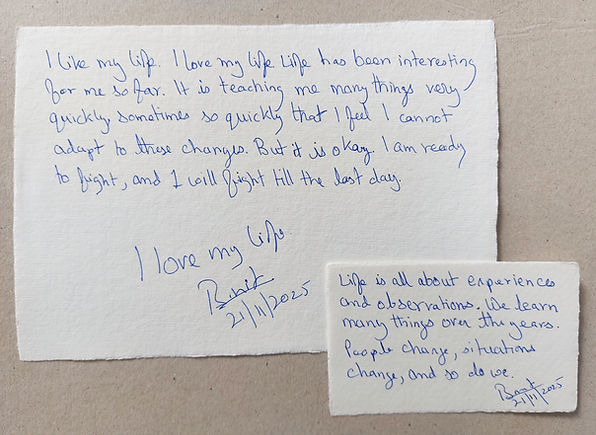 I like my life. I love my life Life has been interesting
for me so far. It is teaching me many things very
quickly, sometimes so quickly that I feel I cannot
adapt to these changes. But it is okay. I am ready
to fight, and I will fight till the last day.
I love my life.
21/11/2025
Life is all about experiences
and observations. We learn
many things over the years.
People change, situations
change, and so do we.
21/11/2025